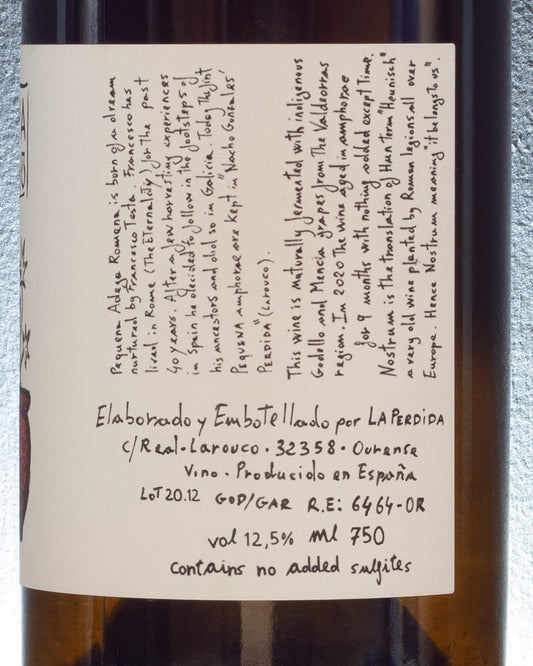 Pequena Adega Romena is born of a dream
nurtured by Francesco Testa. Francesco has
lived in Rome (The Eternal City) for the past
40 years. After a few harvesting experiences
in Spain he decided to follow in the footsteps of
his ancestors and did so in Galicia. Today this joint
Pequena amphorae are kept in "Nacho Gonzales'
Perdida" (Larouco).
This wine is naturally fermented with indigenous
Godello and Mencia grapes from the Valdeorras
region. In 2020 the wine aged in amphorae
for 9 months with nothing added except time.
Nostrum is the translation of Hun term "Heunisch"
a very old wine planted by Roman legions all over
Europe. Hence Nostrum meaning "it belongs to us".
Elaborado y Embotellado por LA PERDIDA
c/Real-Larouco. 32358. Ourense
Vino. Producido en España
LOT 20.12 GOD/GAR R.E: 6464-OR
vol 12,5% ml 750
contains no added sulfites